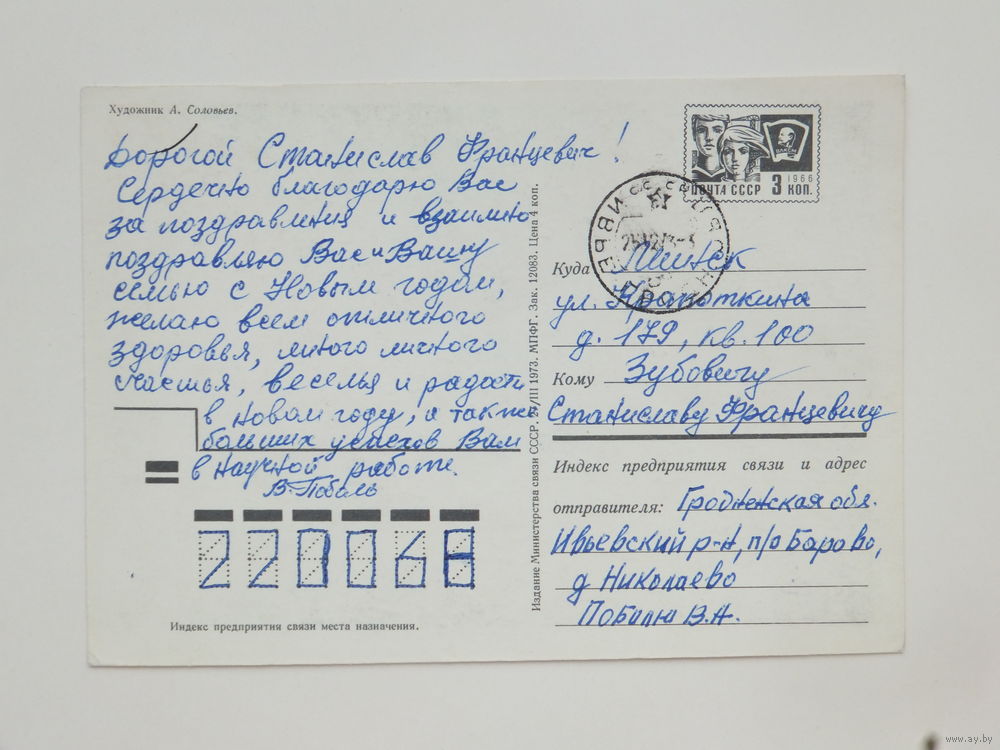 Художник А. Соловьев.
Дорогой Станислав Францевич!
Сердечно благодарю Вас
за поздравления и взаимно
поздравляю Вас и Вашу
семью с Новым годом,
желаю всем отличного
здоровья, много личного
счастья, веселья и радости
в новом году, а также
больших успехов Вам
в научной работе.
В. Поболь
220068
Индекс предприятия связи места назначения.
Издание Министерства связи СССР. 27/III 1973. МПФГ. Зак. 12083. Цена 4 коп.
ВЛКСМ
1966
ПОЧТА СССР 3 КОП.
Куда Минск
ул. Кропоткина
д. 179, кв. 100
Кому Зубовичу
Станиславу Францевичу
Индекс предприятия связи и адрес
отправителя: Гродненская обл.
Ивьевский р-н, п/о Барово,
д Николаево
Поболю В.А.
www.ay.by